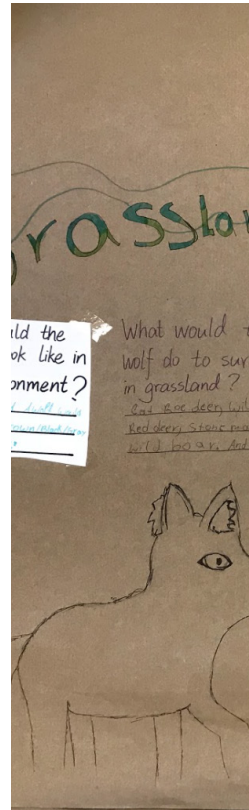 grasslan
uld the
ok like in
onment?
What would t
wolf do to sur
in grassland?
Eat Roe deer, Wil
Red deer, Stone ma
wild boar. And